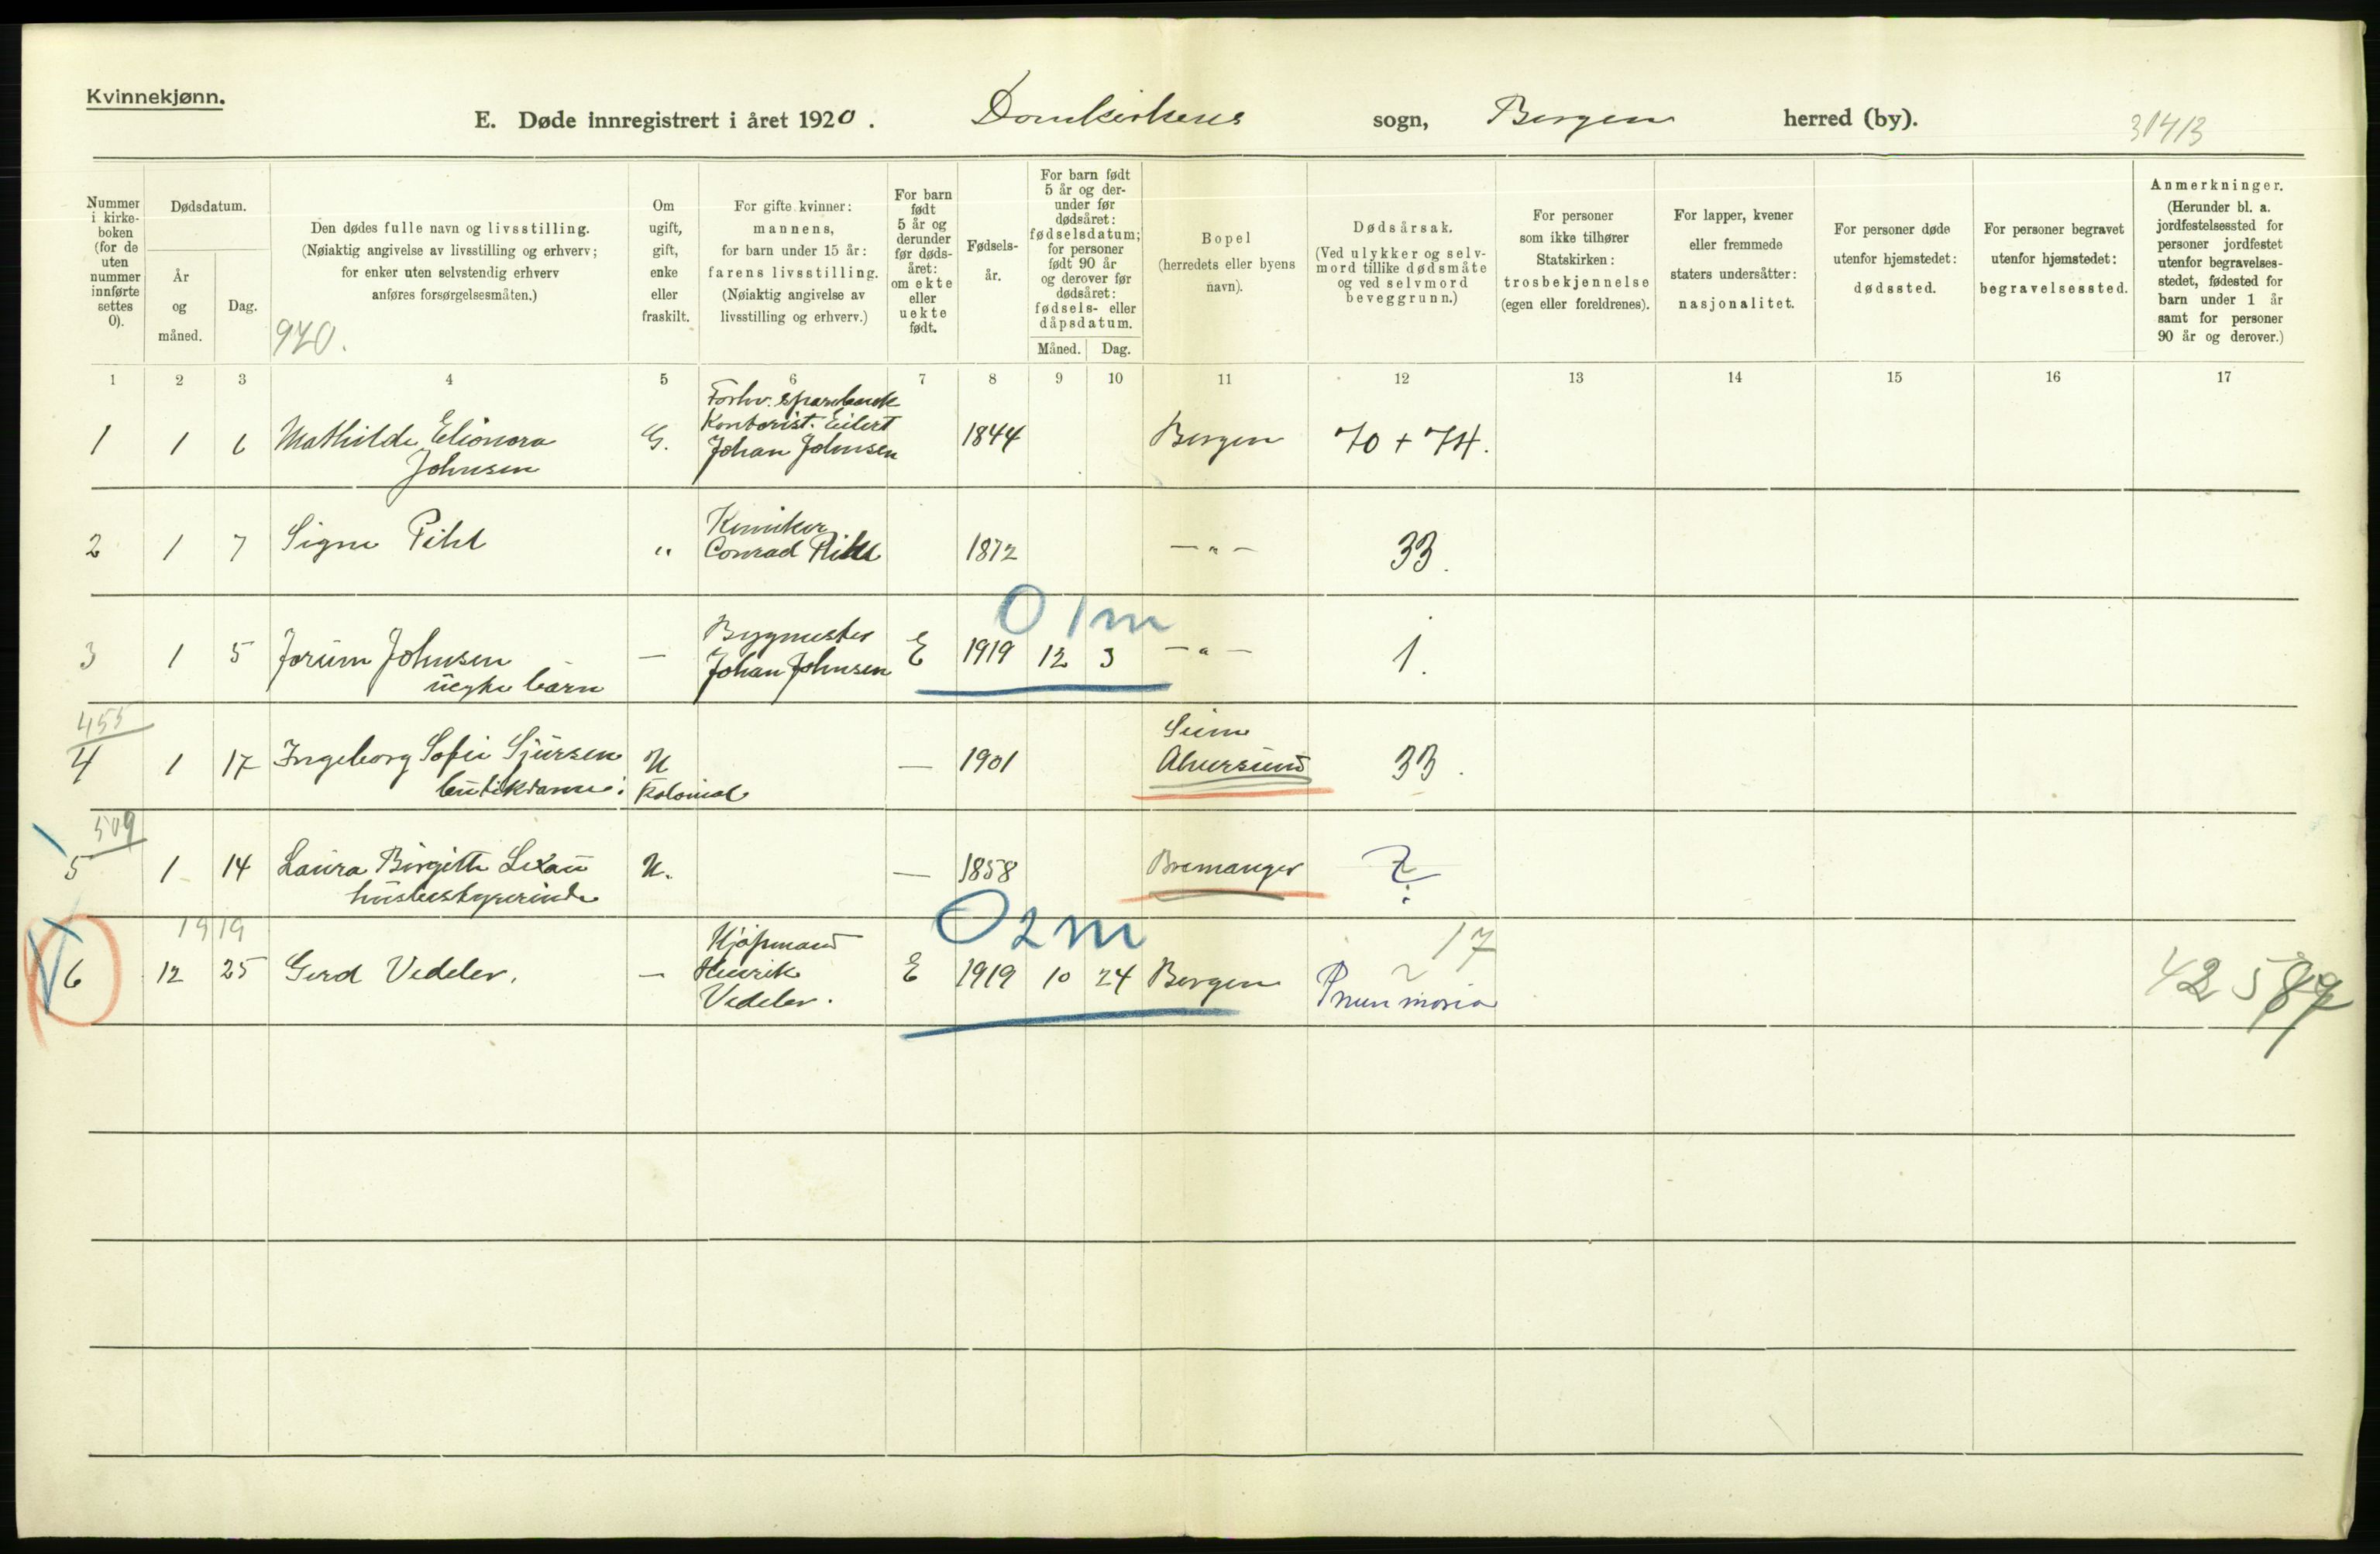 Kvinnekjønn.
E. Døde innregistrert i året 1920. Domkirkens sogn, Bergen herred (by). 31413
Nummer i kirke-boken (for de uten nummer innførte settes 0).
Dødsdatum.
År og måned.
Dag.
Den dødes fulle navn og livsstilling.
(Nøiaktig angivelse av livsstilling og erhverv;
for enker uten selvstendig erhverv
anføres forsørgelsesmåten.)
920.
Om ugift, gift, enke eller fraskilt.
For gifte kvinner:
mannens,
for barn under 15 år:
farens livsstilling.
(Nøiaktig angivelse av
livsstilling og erhverv.)
For barn født 5 år og derunder før døds-året: om ekte eller uekte født.
Fødsels-år.
For barn født 5 år og der-under før dødsåret: fødselsdatum; for personer født 90 år og derover før dødsåret: fødsels- eller dåpsdatum.
Måned. Dag.
Bopel
(herredets eller byens
navn).
Dødsårsak.
(Ved ulykker og selv-
mord tillike dødsmåte
og ved selvmord
beveggrunn.)
For personer
som ikke tilhører
Statskirken:
trosbekjennelse
(egen eller foreldrenes).
For lapper, kvener
eller fremmede
staters undersåtter:
nasjonalitet.
For personer døde
utenfor hjemstedet:
dødssted.
For personer begravet
utenfor hjemstedet:
begravelsessted.
Anmerkninger.
(Herunder bl. a.
jordfestelsessted for
personer jordfestet
utenfor begravelses-
stedet, fødested for
barn under 1 år
samt for personer
90 år og derover.)
1 2 3 4 5 6 7 8 9 10 11 12 13 14 15 16 17
Forhv. Sparebank
1 1 6 Mathilde Elionora G. Kontorist. Eilert 1844 Bergen 70 + 74.
Johnsen Johan Johnsen
Kemiker
2 1 7 Signe Pihl " Conrad Pihl 1872 — " — 33.
0 1 m
Bygmester
3 1 5 Jorun Johnsen — Johan Johnsen E 1919 12 3 — " — 1.
barn
455
Seim
4 1 17 Ingeborg Sofie Sjursen U — 1901 Alversund 33.
butikdame i Kolonial
509
5 1 14 Laura Birgitte U. — 1858 Bremanger ?
husbestyrerinde
1919
0 2 m
Kjøpmand 17
6 12 25 Gerd Vedeler. — Henrik E 1919 10 24 Bergen Pneumonia 42589
Vedeler.